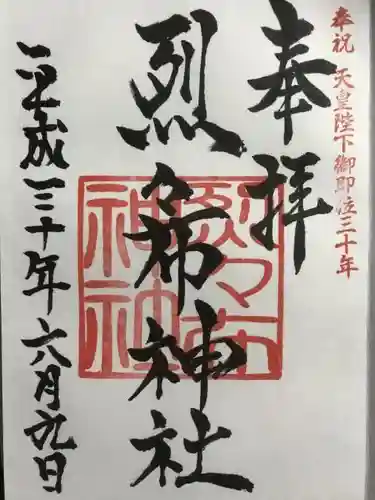 奉祝 天皇陛下御即位三十年
奉拝
烈々布神社
烈々布神社
平成三十年六月九日